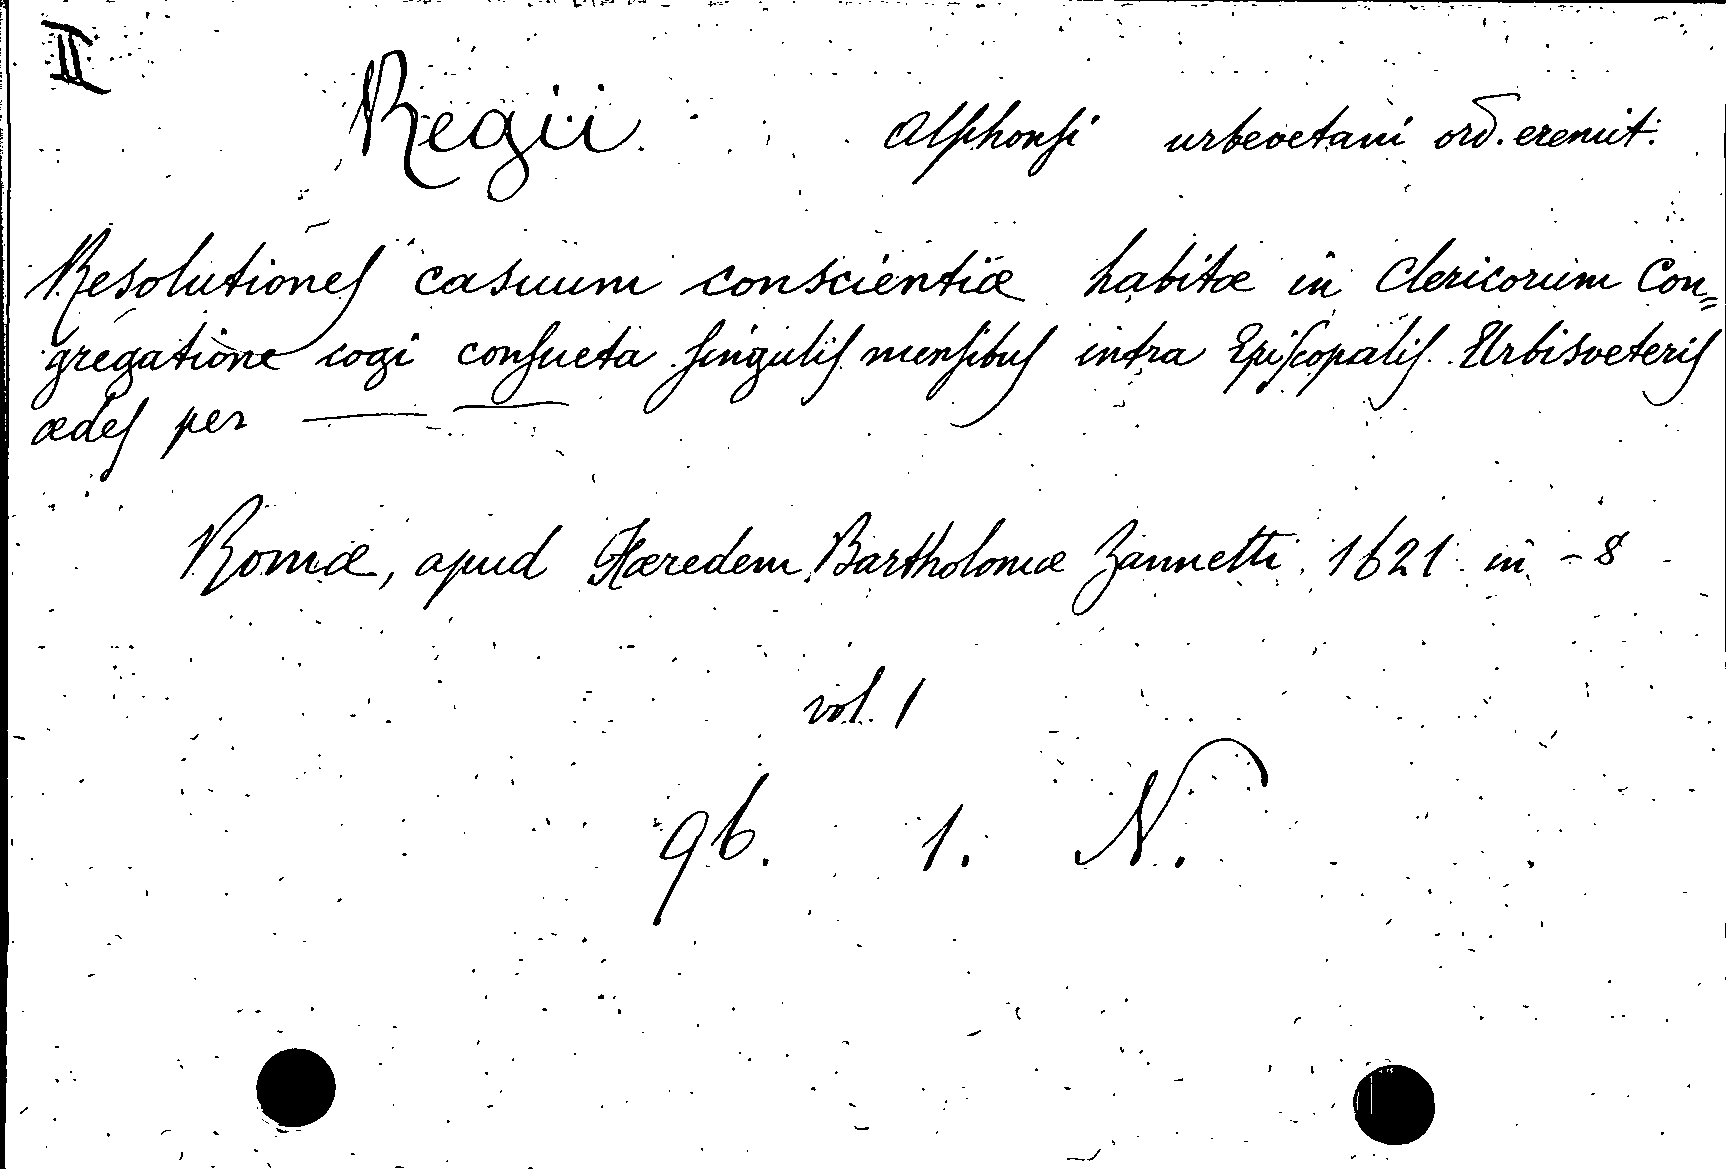 II
Regii Alphonsi urbevetani ord. eremit:
Resolutiones casuum conscientiæ habitæ in Clericorum Con=
gregatione cogi consueta singulis mensibus intra Episcopalis Urbisveteris
ædes per — —
Romæ, apud Hæredem Bartholomæ Zannetti 1621 in - 8
vol. 1
96. 1. N.